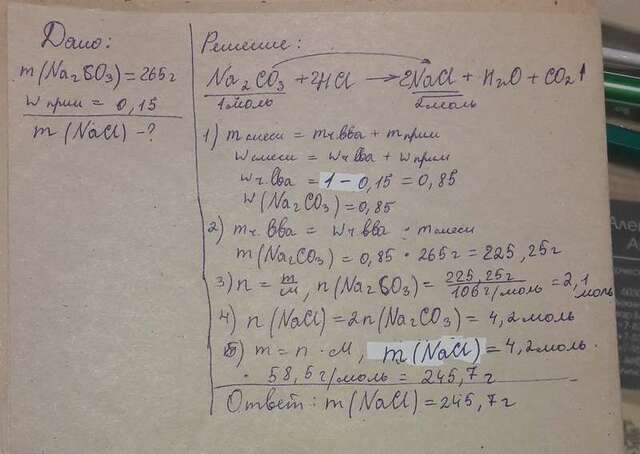 Дано:
m(Na2CO3)=265г
wприм = 0,15
m(NaCl)-?
Решение:
Na2CO3 + 2HCl → 2NaCl + H2O + CO2↑
1моль 2моль
1) mсмеси = mч.вва + mприм
wсмеси = wч.вва + wприм
wч.вва = 1 - 0,15 = 0,85
w(Na2CO3) = 0,85
2) mч.вва = wч.вва · mсмеси
m(Na2CO3) = 0,85 · 265г = 225,25г
3) n = m/M, n(Na2CO3) = 225,25г/106г/моль = 2,1 моль
4) n(NaCl) = 2n(Na2CO3) = 4,2моль
5) m = n · M, m(NaCl) = 4,2моль ·
· 58,5г/моль = 245,7г
Ответ: m(NaCl) = 245,7г